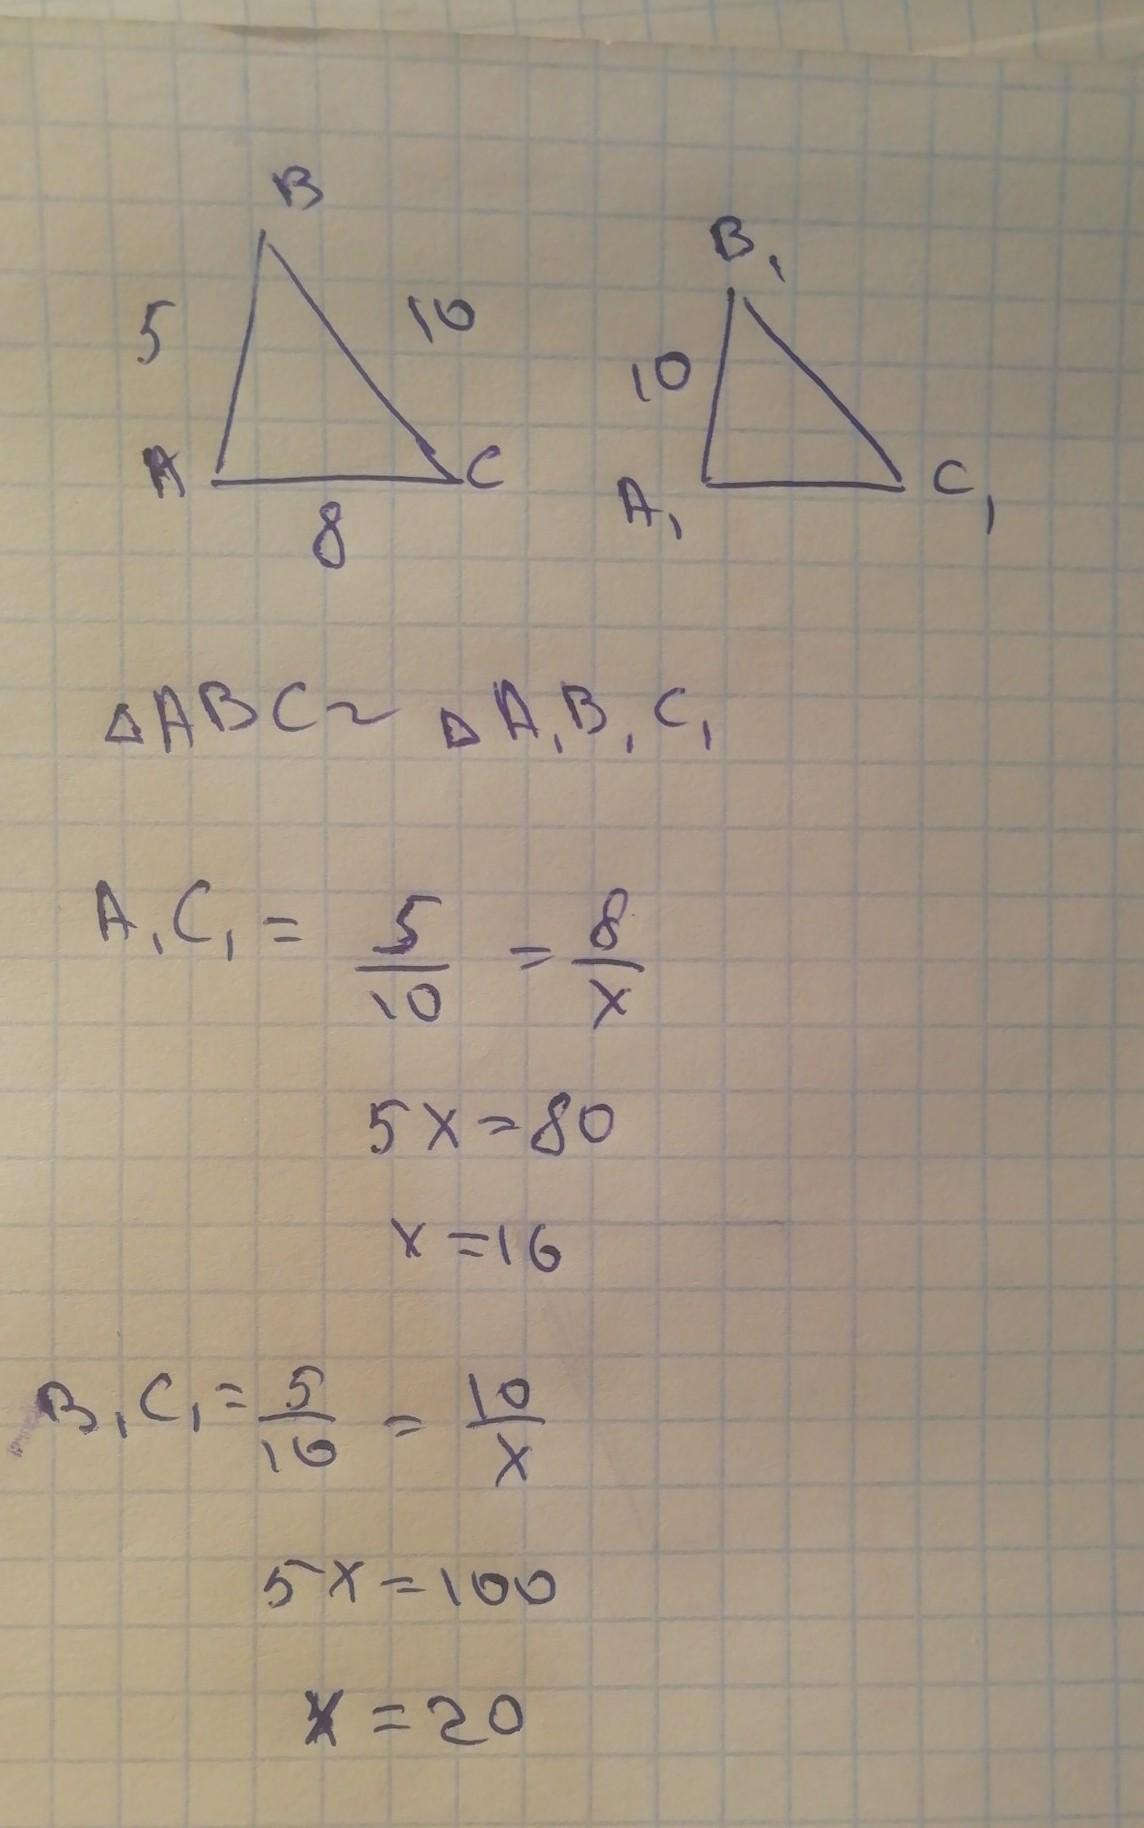 B
B₁
5
10
10
A
C
A₁
C₁
8
△ABC ~ △A₁B₁C₁
A₁C₁ = 5/10 = 8/x
5x = 80
x = 16
B₁C₁ = 5/10 = 10/x
5x = 100
x = 20